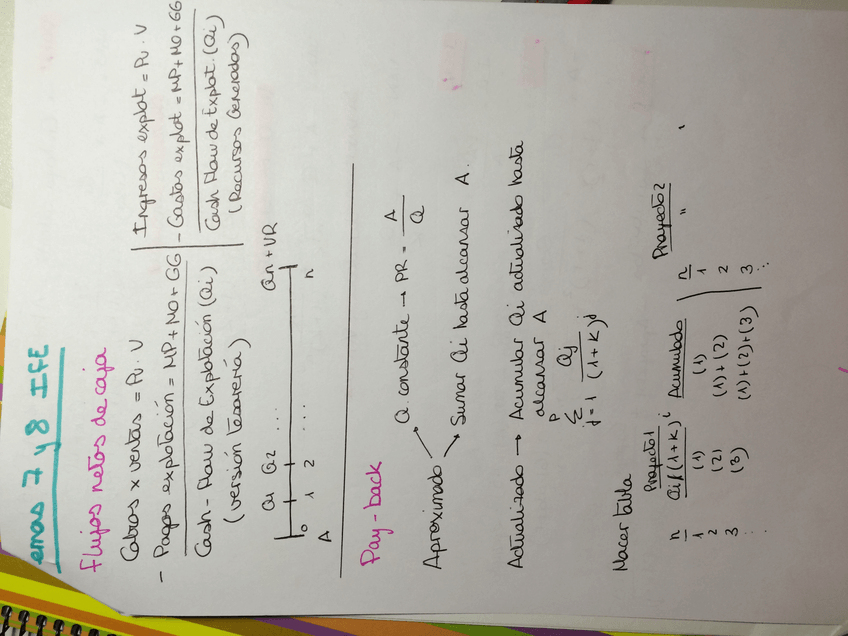 emas 7 y 8 IFE
Flujos netos de caja
Cobros x ventas = Pv · V
- Pagos explotación = MP + MO + GG
Cash - Flow de Explotación (Qi)
(versión tesorería)
Ingresos explot = Pv · V
- Gastos explot = MP + MO + GG
Cash Flow de Explot. (Qi)
(Recursos Generados)
Q1 Q2 ... Qn + VR
0 1 2 ... n
A
Pay-back
Aproximado
Q constante → PR = A / Q
Sumar Qi hasta alcanzar A.
Actualizado → Acumular Qi actualizado hasta
alcanzar A
P
Σ Qj / (1+K)^j
j=1
Hacer tabla
Proyecto 1 Proyecto 2
n Qi/(1+K)^i Acumulado n "
1 (1) (1) 1
2 (2) (1)+(2) 2
3 (3) (1)+(2)+(3) 3